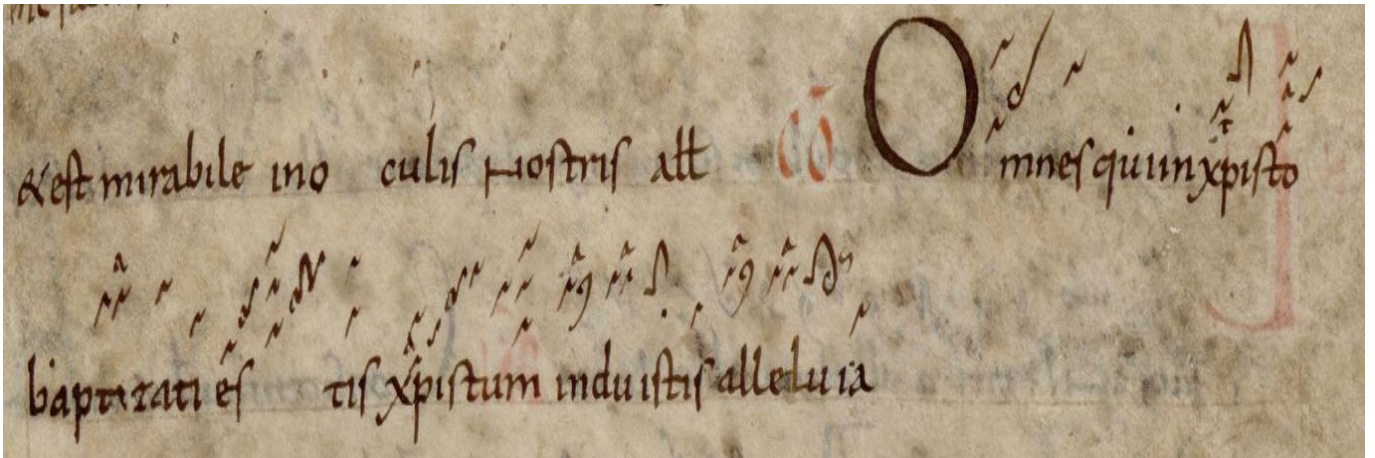 &est mirabile ino culis Nostris all c̄o Omnes qui in xp̄isto
baptizati es tis xp̄istum induistis alleluia